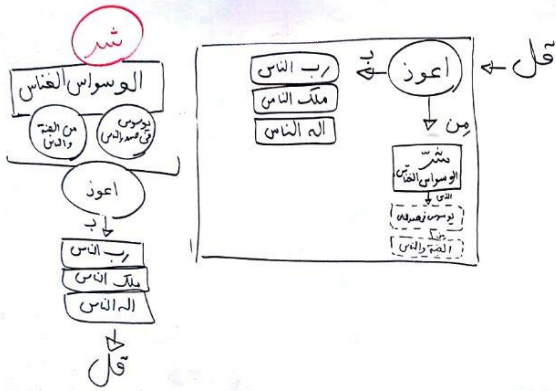 قل
اعوذ
ب
رب الناس
ملک الناس
اله الناس
مِن
شرّ
الوسواس الخنّاس
الذی
یوسوس فی صدور
من
الجنة والناس
شر
الوسواس الخناس
یوسوس
فی صدور الناس
من الجنة
والناس
اعوذ
ب
رب الناس
ملک الناس
اله الناس
قل